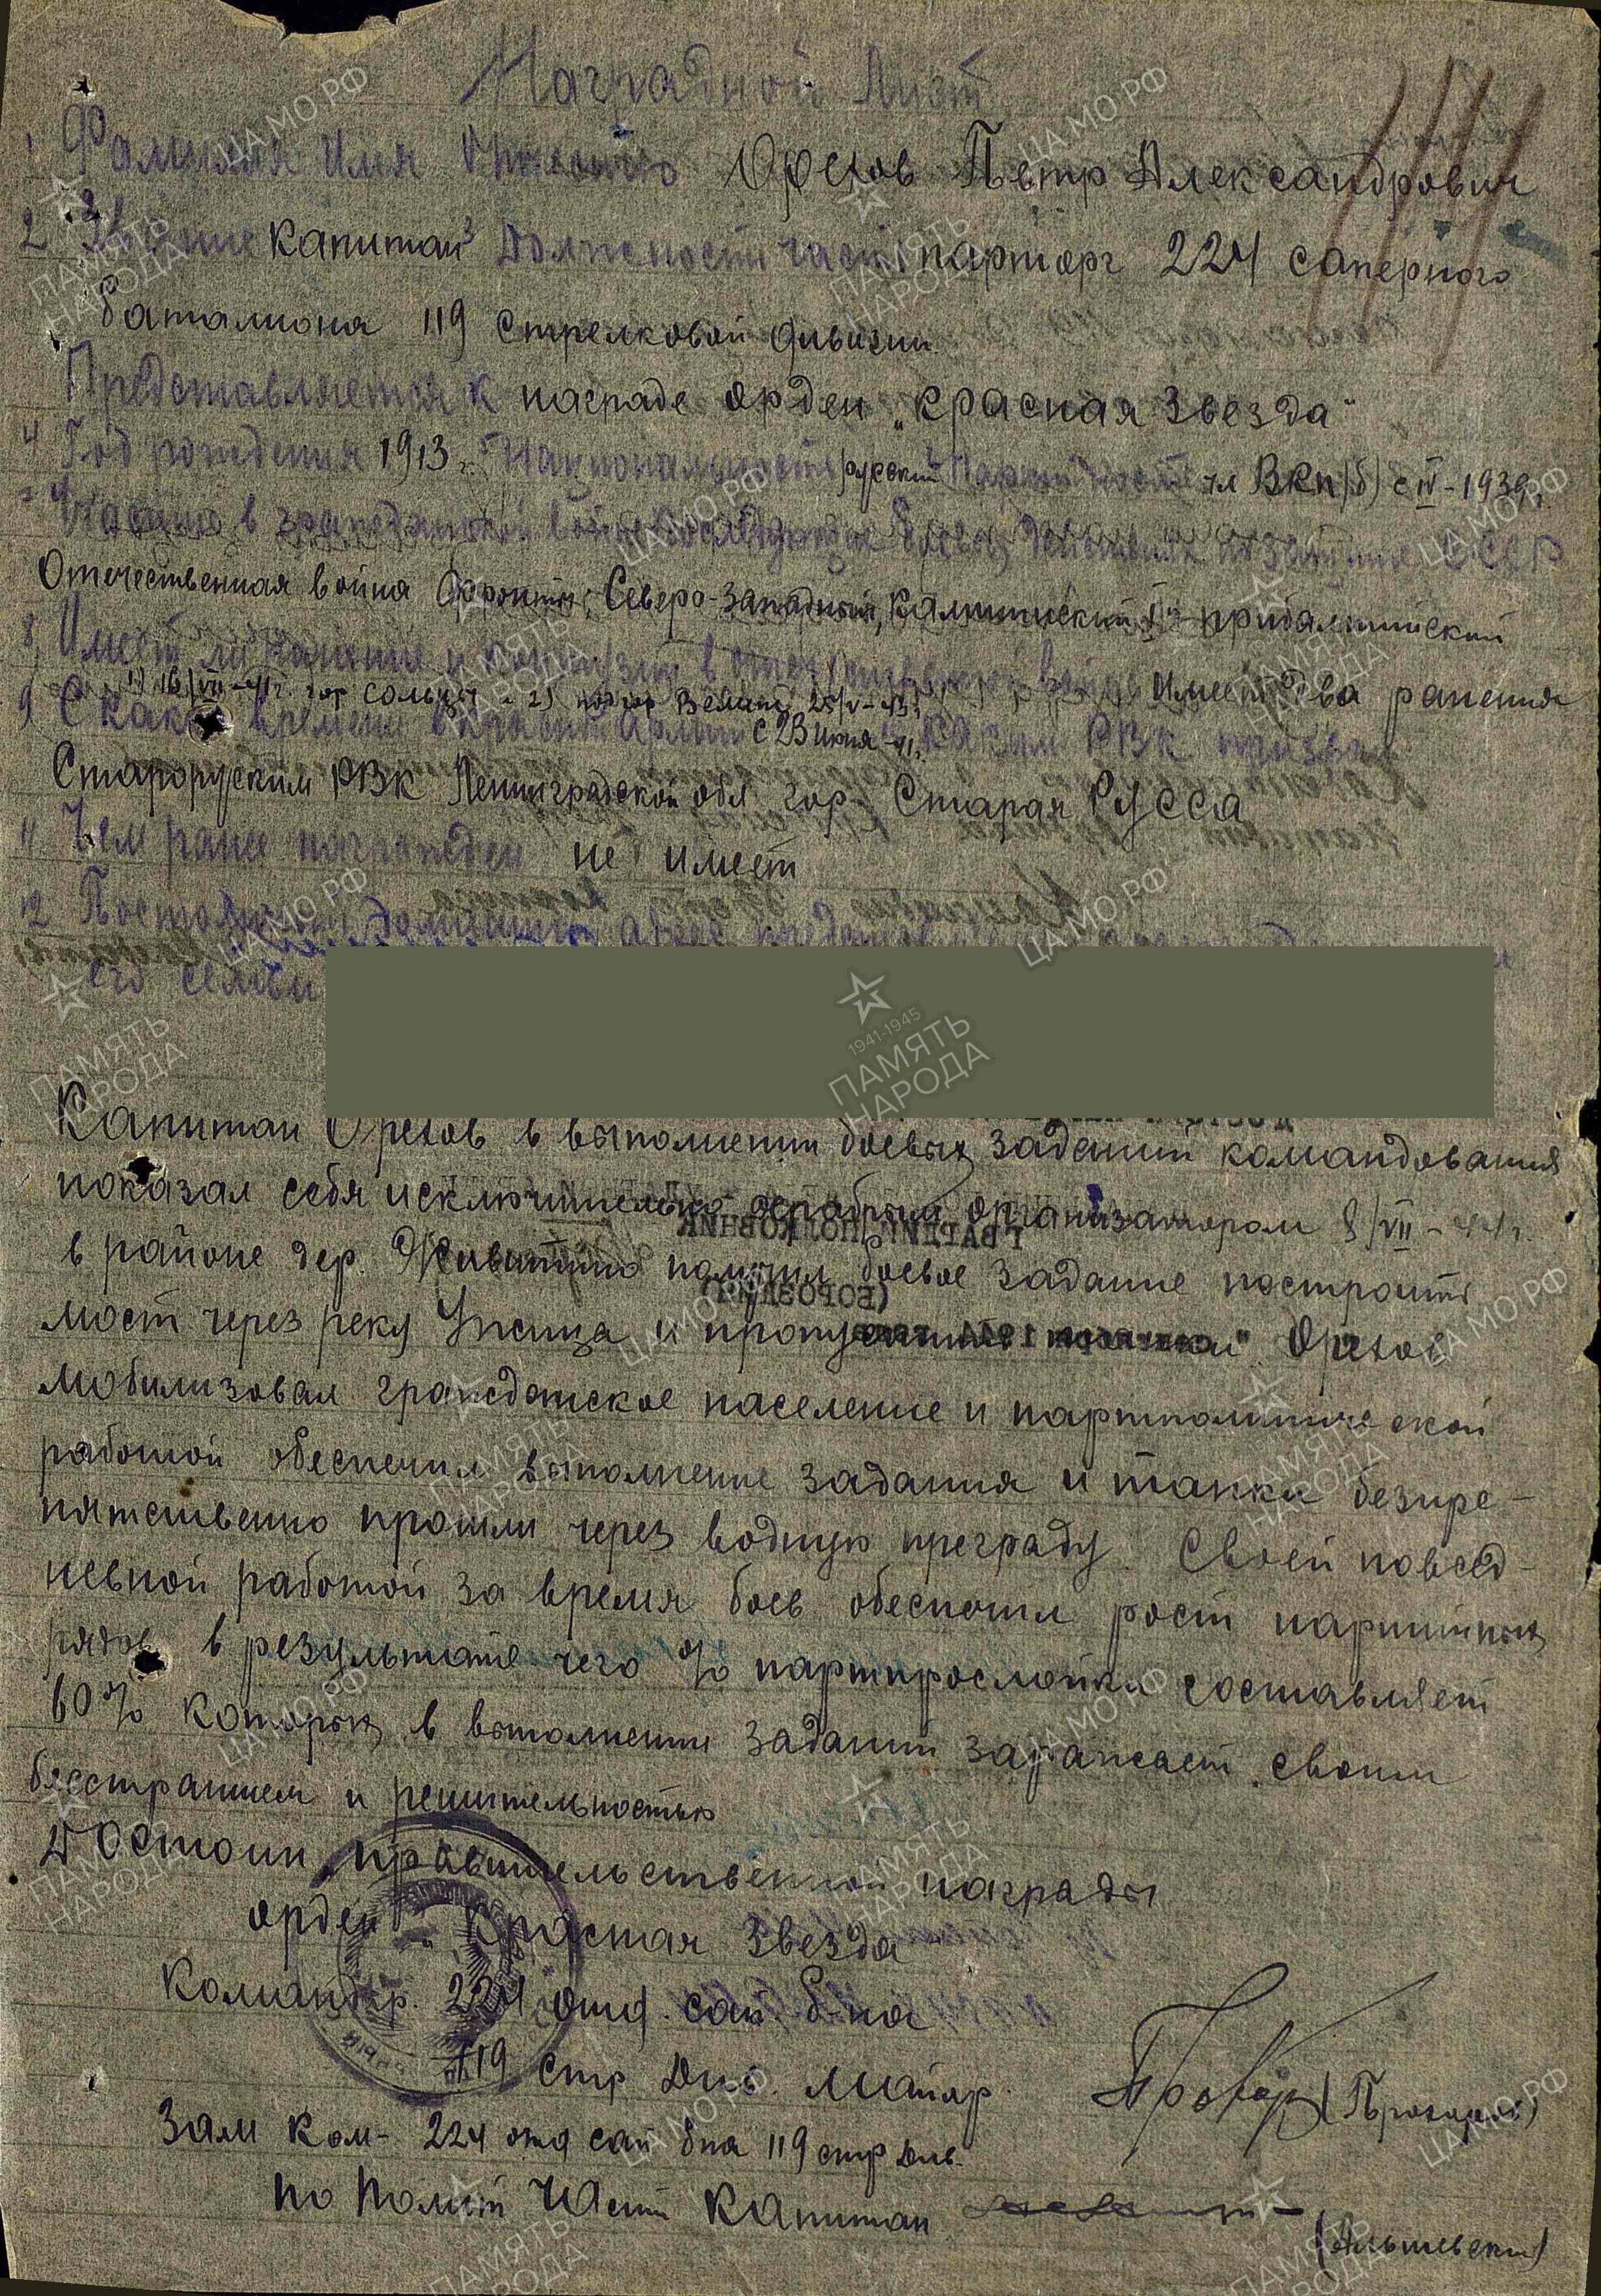 Наградной Лист
1 Фамилия Имя Отчество Орехов Петр Александрович
2 Звание капитан 3 Должность часть парторг 224 саперного
баталиона 119 стрелковой дивизии.
Представляется к награде орден „Красная Звезда"
4 Год рождения 1913 г. 5 Национальность русский Партийность чл ВКП/б/ с IV-1939г.
Участие в гражданской войне последующих боевых действиях по защите СССР
Отечественная война Фронты: Северо-Западный, Калининский I й прибалтийский
8 Имеет ли ранение и контузии в отечественной войне имеет два ранения
1) 16/VII-41г. гор Сольцы и 2) под гор Велиж 25/V-43г.
9 С какого времени в Красной армии с 23 июня 41г. Каким РВК призван
Старорусским РВК Ленинградской обл гор. Старая Русса
11 Чем ранее награжден не имеет
12 Постоянный домашний адрес
его семьи
Капитан Орехов в выполнении боевых заданий командования
показал себя исключительно храбрым организатором 8/VII-44г.
в районе дер. получил боевое задание построить
мост через реку и пропустить танки. Орехов
мобилизовал гражданское население и партполитической
работой обеспечил выполнение задания и танки безпре-
пятственно прошли через водную преграду. Своей повсед-
невной работой за время боев обеспечил рост партийных
рядов в результате чего % партпрослойки составляет
60% которых в выполнении заданий заражает своим
бесстрашием и решительностью
Достоин правительственной награды
орден „Красная Звезда
Командир. 224 отд. сап. б-на
119 стр Див. майор. (Прохоров)
Зам Ком- 224 отд сап б-на 119 стр див.
по Полит Части капитан
ЦА МО РФ
ПАМЯТЬ НАРОДА
1941-1945